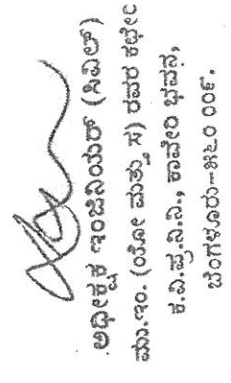 ಅಧೀಕ್ಷಕ ಇಂಜಿನಿಯರ್ (ಸಿವಿಲ್)
ಮು.ಇಂ. (ಯೋ ಮತ್ತು ಸ) ರವರ ಕಛೇರಿ
ಕ.ವಿ.ಪ್ರ.ನಿ.ನಿ., ಕಾವೇರಿ ಭವನ,
ಬೆಂಗಳೂರು-೫೬೦ ೦೦೯.